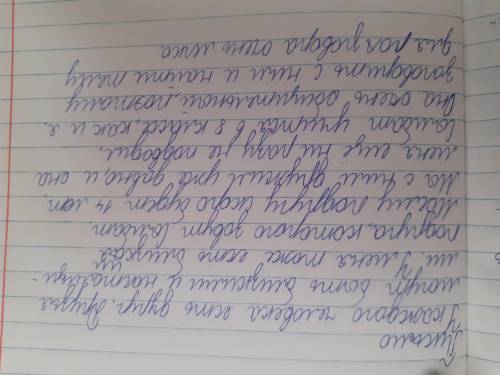 Письмо
У каждого человека есть друг. Друзья
могут быть близкими и настоящи-
ми. У меня тоже есть близкая
подруга, которого зовут Сымбат.
Моему подругу скоро будет 14 лет.
Мы с ним дружим уже давно, и она
меня ещё ни разу не подводил.
Сымбат учится в 8 классе, как и я.
Она очень общительной, поэтому
заговорить с ним и найти тему
для разговора очень легко.